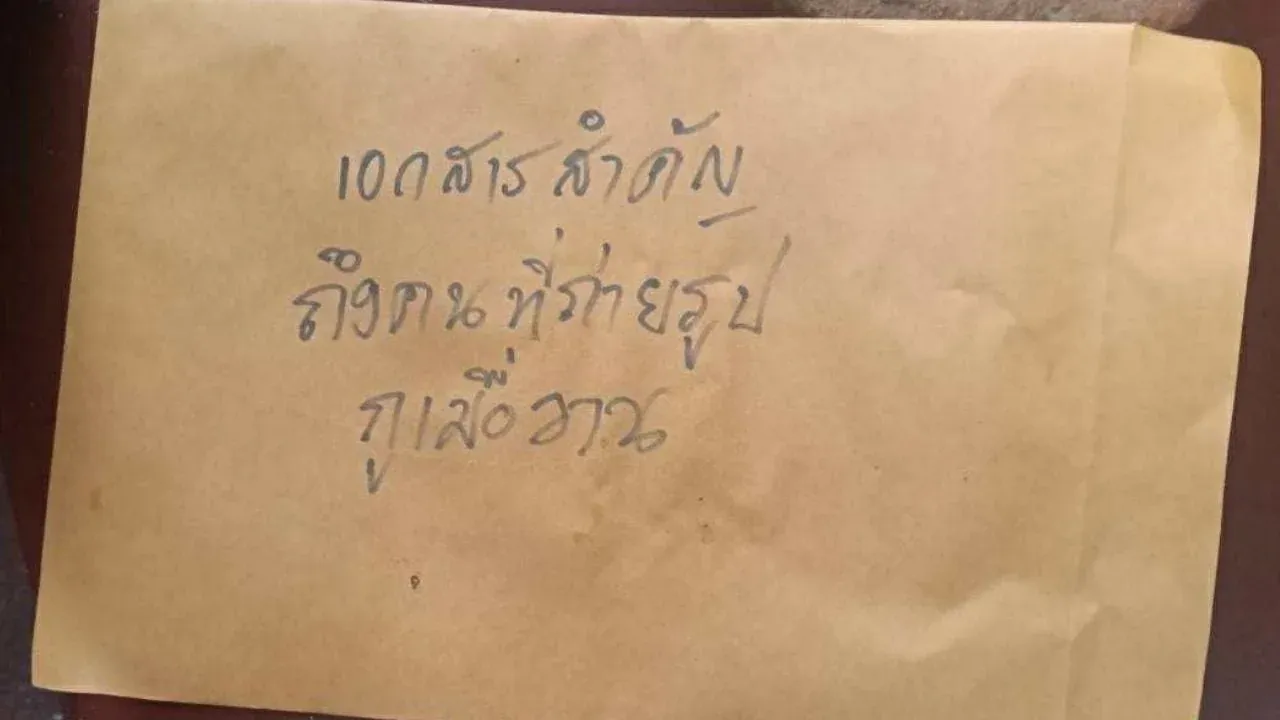 เอกสารสำคัญ
ถึงคนที่ถ่ายรูป
กูเมื่อวาน